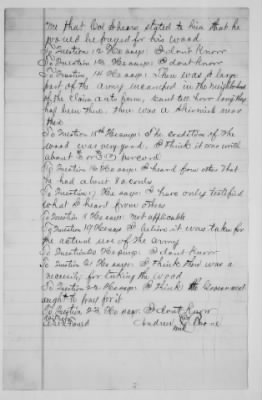 me that Col Sehears stated to him that he
would be payed for his wood
To Question 12 He says: I dont Know
To Question 13 He says: I dont Know
To Question 14 He says: There was a large
part of the army incamped in the neighborhood
of the claimants farm, cant tell how long they
had been there, there was a skirmish near
this
To Question 15th He says: The condition of the
wood was very good, I think it was worth
about 2 or 3 per cord
To Question 16 He says: I heard from others that
he had about 70 cords
To Question 17 He says: I have only testified
what I heard from others
To Question 18 He says: not applicable
To Question 19 He says: I believe it was taken for
the actual use of the army
To Question 20 He says: I dont Know
To Question 21 He says: I think there was a
necessity for taking the wood
To Question 22 He says: I think the Government
ought to pay for it
To Question 23 He says: I dont Know
Andrew
mark